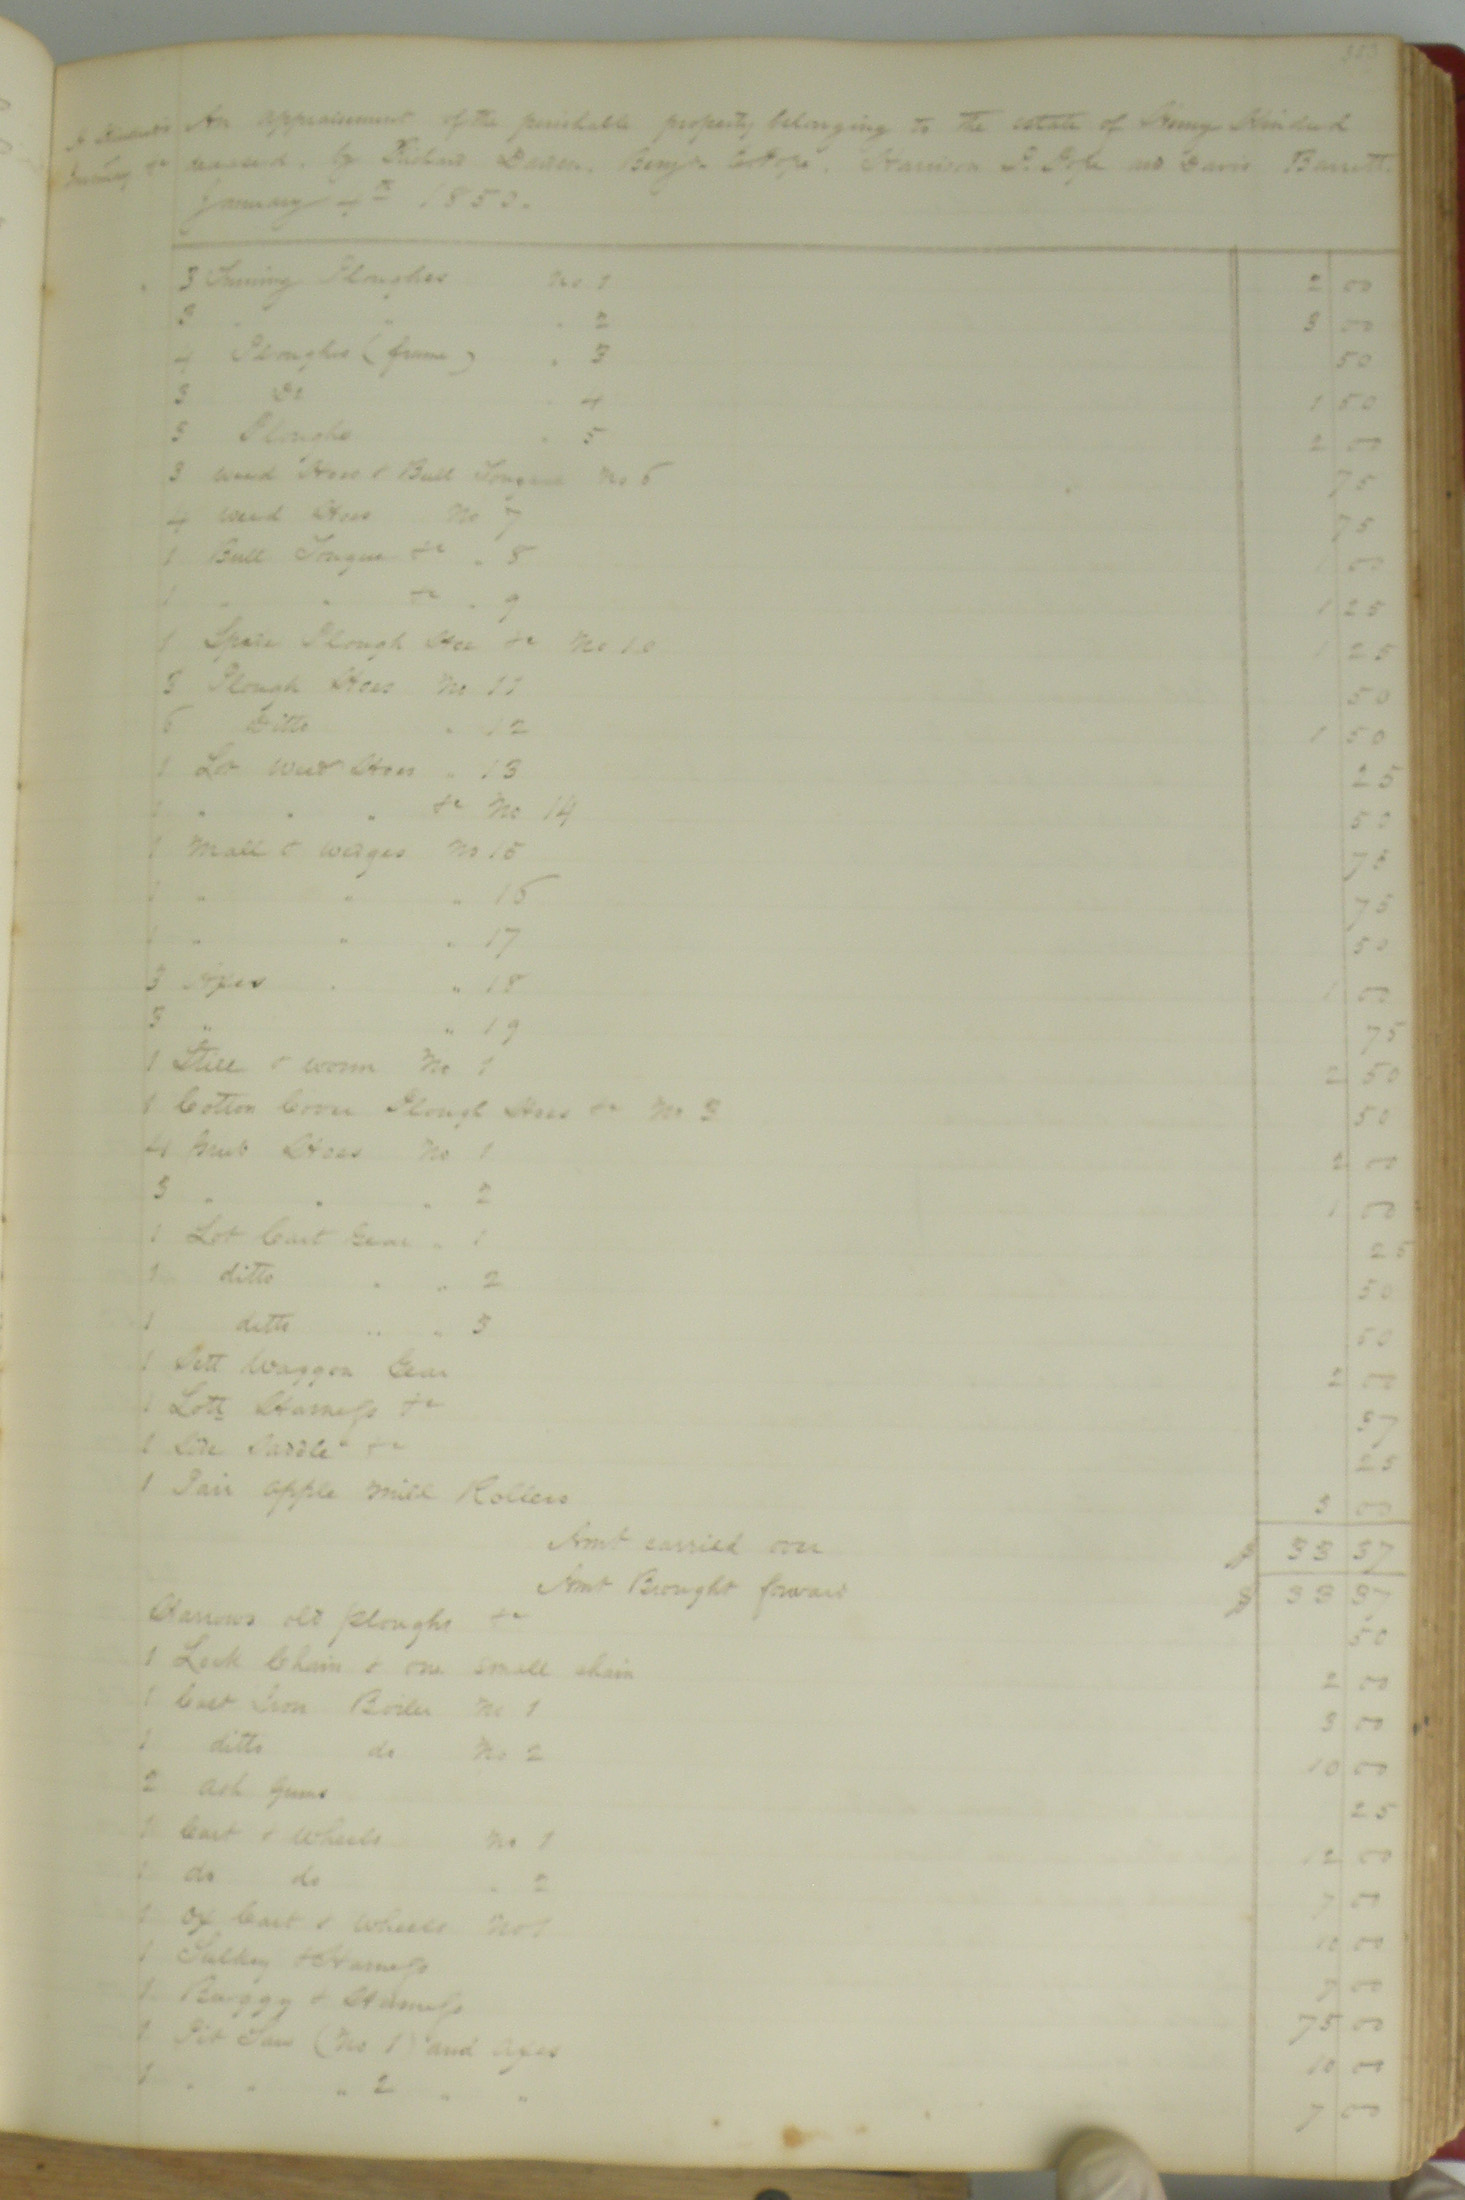 An appraisement of the perishable property belonging to the estate of Henry Kindred
deceased. by Richard Darden. Benj. C. Pope. Harrison P. Pope and Davis Barrett
January 4th 1853.
3 Turning Ploughes No. 1 2 00
3 " " " 2 3 00
4 Ploughes (frame) " 3 50
3 Do 4 1 50
3 Ploughs " 5 2 00
3 weed Hoes & Bull Tongue No 6 75
4 weed Hoes No 7 75
1 Bull Tongue &c " 8 1 00
1 " " &c " 9 1 25
1 Spare Plough Hoe &c No 10 1 25
3 Plough Hoes No 11 50
6 Ditto " 12 1 50
1 Lot Weed Hoes " 13 25
1 " " " &c No 14 50
1 Mall & wedges No 15 75
1 " " " 16 75
1 " " " 17 50
3 Axes " " 18 1 00
3 " " 19 75
1 Still & worm No 1 2 50
1 Cotton Cover Plough Hoes &c No. 3 50
4 Grub Hoes No 1 2 00
3 " " " 2 1 00
1 Lot Cart Gear " 1 25
1 ditto " " 2 50
1 ditto " " 3 50
1 Sett Waggon Gear 2 00
1 Lott Harness &c 37
1 Side Saddle &c 25
1 Pair apple mill Rollers 3 00
Amt carried over $ 33 37
Amt Brought forward $ 33 37
Harrows old ploughs &c 50
1 Lock Chain & one small chain 2 00
1 Cast Iron Boiler No 1 3 00
1 ditto do No 2 10 00
2 ash Gums 25
1 Cart & Wheels No 1 12 00
1 do do " 2 7 00
1 Ox Cart & Wheels No 1 00
1 Sulkey & Harness 7 00
1 Buggy & Harness 75 00
1 Pit Saw (No 1) and Axes 10 00
1 " " " 2 " " 7 00